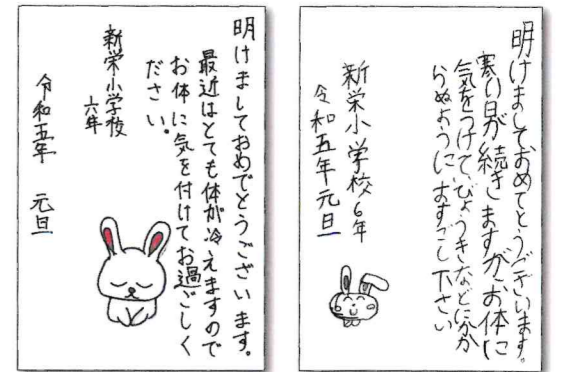 明けましておめでとうございます。
最近はとても体が冷えますので
お体に気を付けてお過ごしく
ださい。
新栄小学校
六年
令和五年 元旦
明けましておめでとうございます。
寒い日が続きますがお体に
気をつけて、びょうきなどにかか
らぬようにおすごし下さい
新栄小学校6年
令和五年元旦